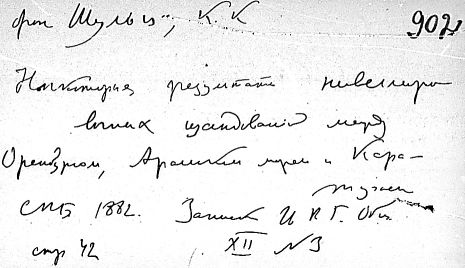 фон Шульц, К. К 902
Некоторые результаты нивелиро
вочных изследований между
Оренбургом, Аральским морем и Кара-
тугаем
СПБ 1882. Записк И Р. Г. Общ
стр 42 XII N3